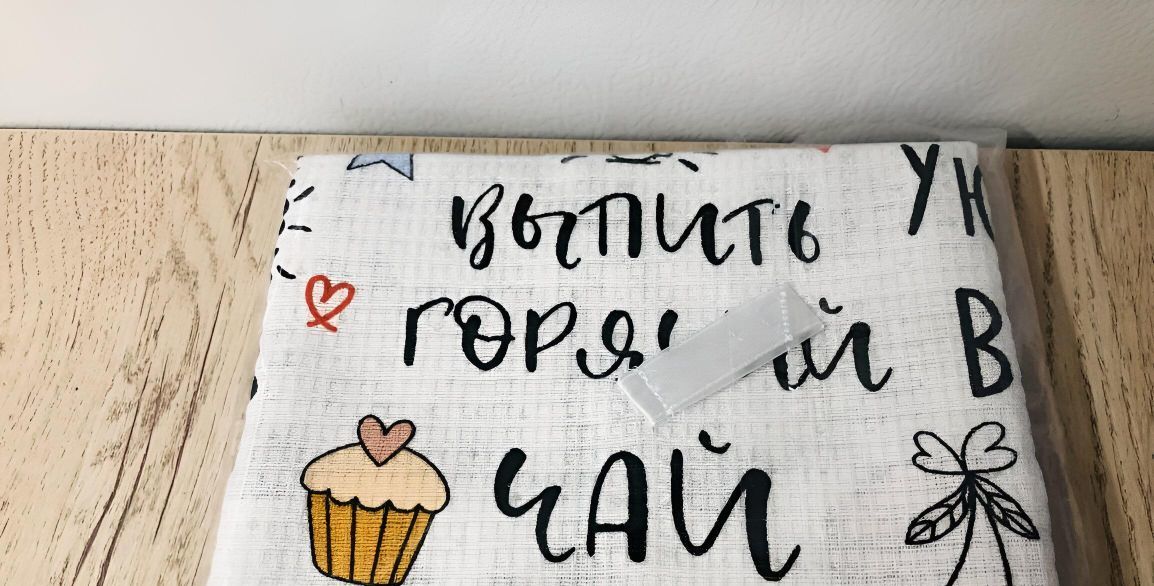 выпить
горячий
чАй
В